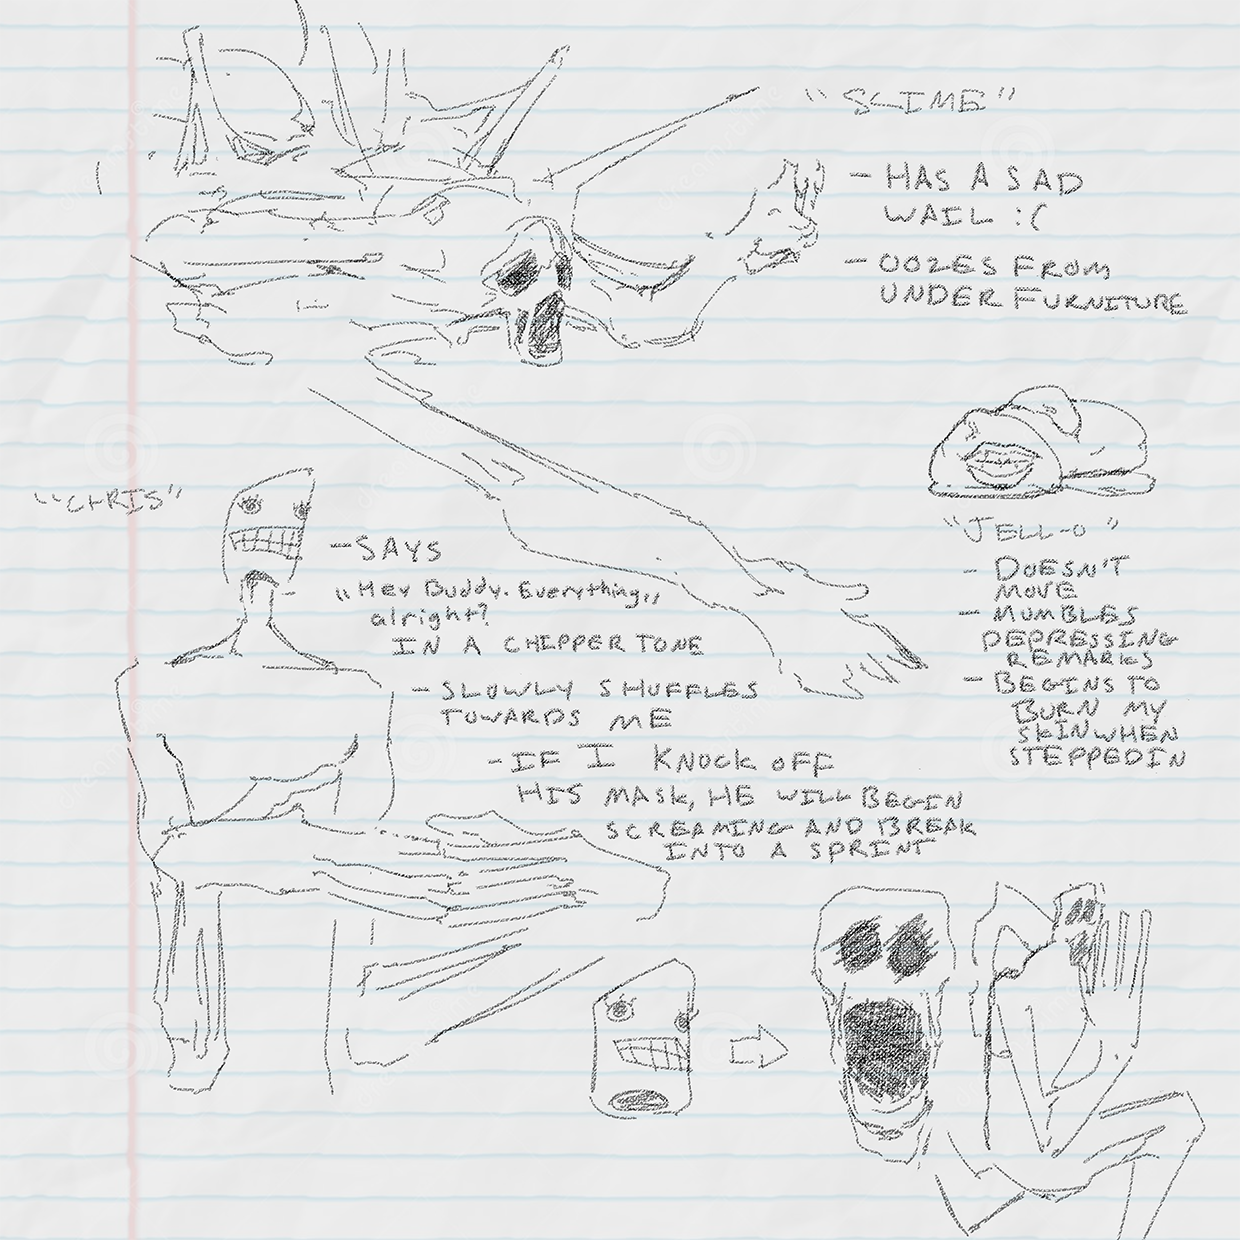 "SLIME"
- HAS A SAD
WAIL :(
- OOZES FROM
UNDER FURNITURE
"CHRIS"
- SAYS
"Hey Buddy. Everything
alright?"
IN A CHIPPER TONE
- SLOWLY SHUFFLES
TOWARDS ME
- IF I KNOCK OFF
HIS MASK, HE WILL BEGIN
SCREAMING AND BREAK
INTO A SPRINT
"JELL-O"
- DOESN'T
MOVE
- MUMBLES
DEPRESSING
REMARKS
- BEGINS TO
BURN MY
SKIN WHEN
STEPPED IN